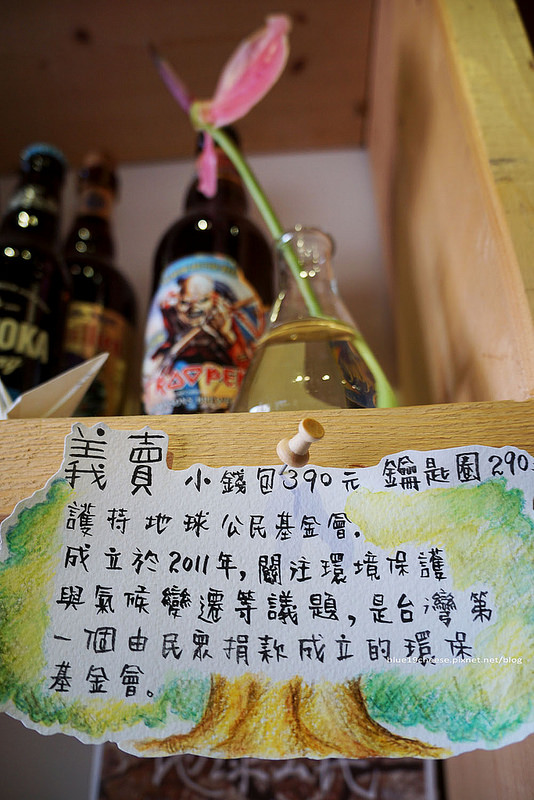 OKA
TROOPER
義賣 小錢包390元 鑰匙圈290
護持地球公民基金會.
成立於2011年,關注環境保護
與氣候變遷等議題,是台灣第
一個由民眾捐款成立的環保
基金會。
blue19cheese.pixnet.net/blog